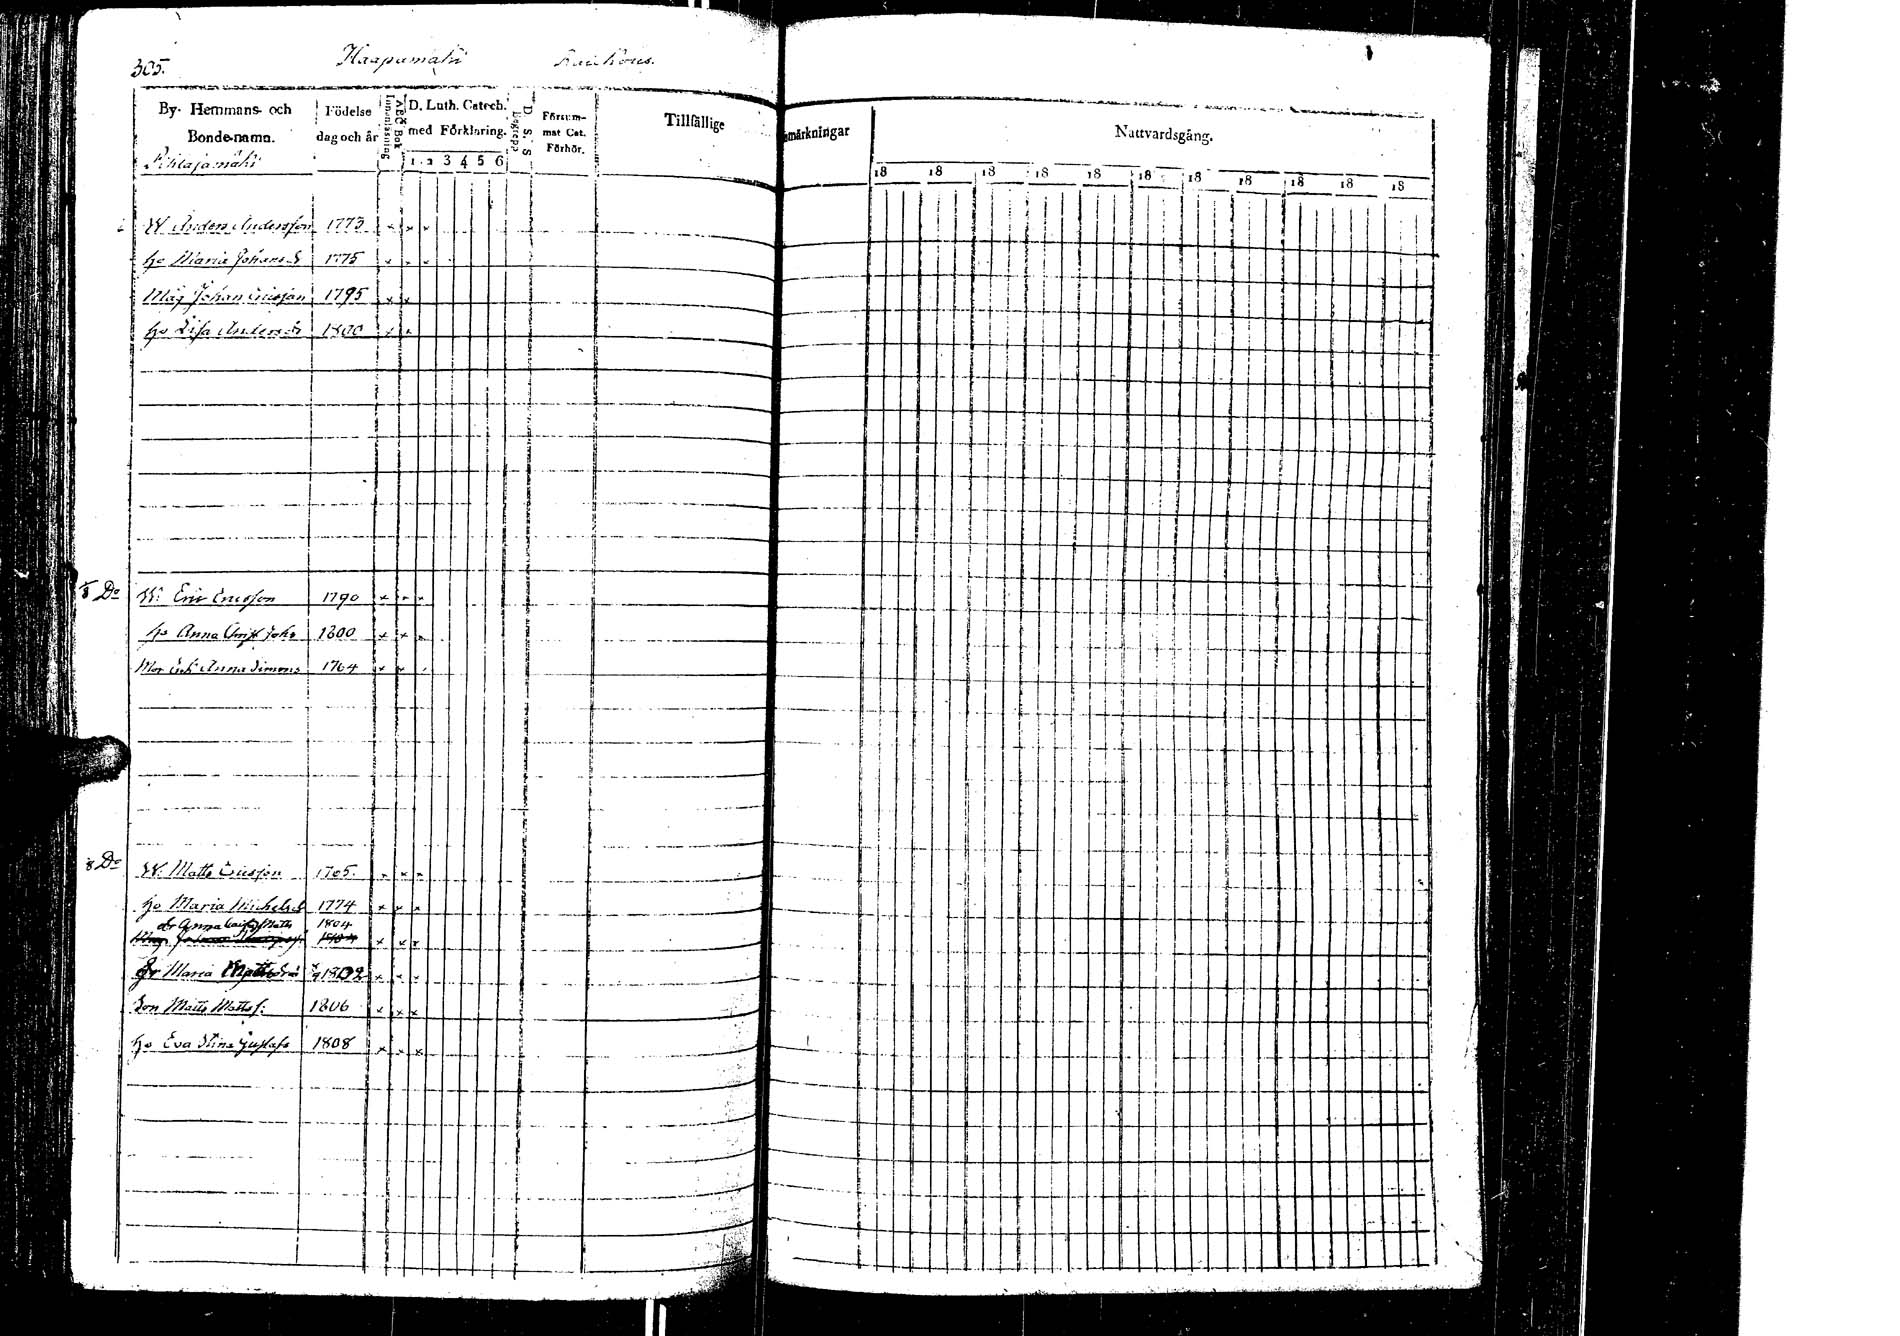 305. Haapamäki
By- Hemmans- och Bonde-namn.
Födelse dag och år
Innanläsning
ABC Bok
D. Luth. Catech. med Förklaring.
1 2 3 4 5 6
D. S. S. Begrepp
Försum-mat Cat. Förhör.
Tillfällige
Anmärkningar
Nattvardsgång.
18 18 18 18 18 18 18 18 18 18 18
Pihlajamäki
W Anders Andersson 1773 x x x
ho Maria Johansd 1775 x x x
Måg Johan Ericsson 1795 x x
ho Lisa Andersdr 1800 x x
Do W. Eric Ericsson 1790 x x x
ho Anna Christ Johs 1800 x x x
Mor Enk Anna Simons 1764 x x
8 Do W. Matts Ericsson 1765 x x x
ho Maria Michelsd 1774 x x x
dr Anna Matts 1804
x x x
dr Maria Mattsdr 1802 x x x
Son Matts Mattss: 1806 x x x
ho Eva Stina Gustafs 1808 x x x